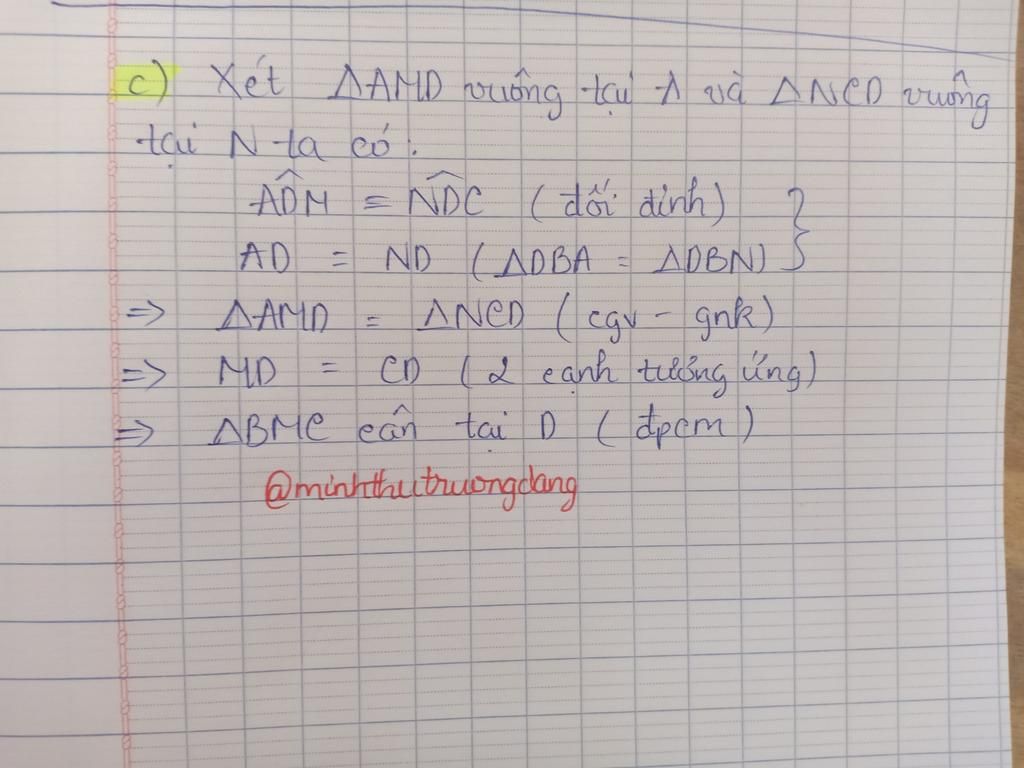 c) Xét ΔAMD vuông tại A và ΔNCD vuông
tại N ta có:
ADM̂ = NDĈ (đối đỉnh) }
AD = ND (ΔDBA = ΔDBN)
=> ΔAMD = ΔNCD (cgv - gnk)
=> MD = CD (2 cạnh tương ứng)
=> ΔBMC cân tại D (đpcm)
@minhthutruongdang